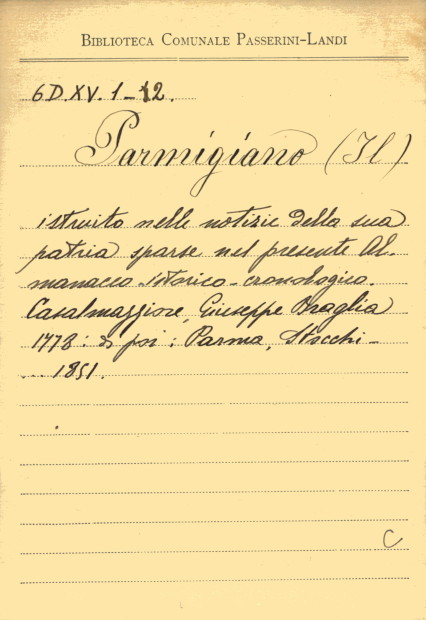 BIBLIOTECA COMUNALE PASSERINI-LANDI
6D.XV. 1-12.
Parmigiano (Il)
istruito nelle notizie della sua
patria sparse nel presente Al-
manacco istorico-cronologico.
Casalmaggiore, Giuseppe Braglia
1778: e poi: Parma, Stocchi-
... 1851.
C